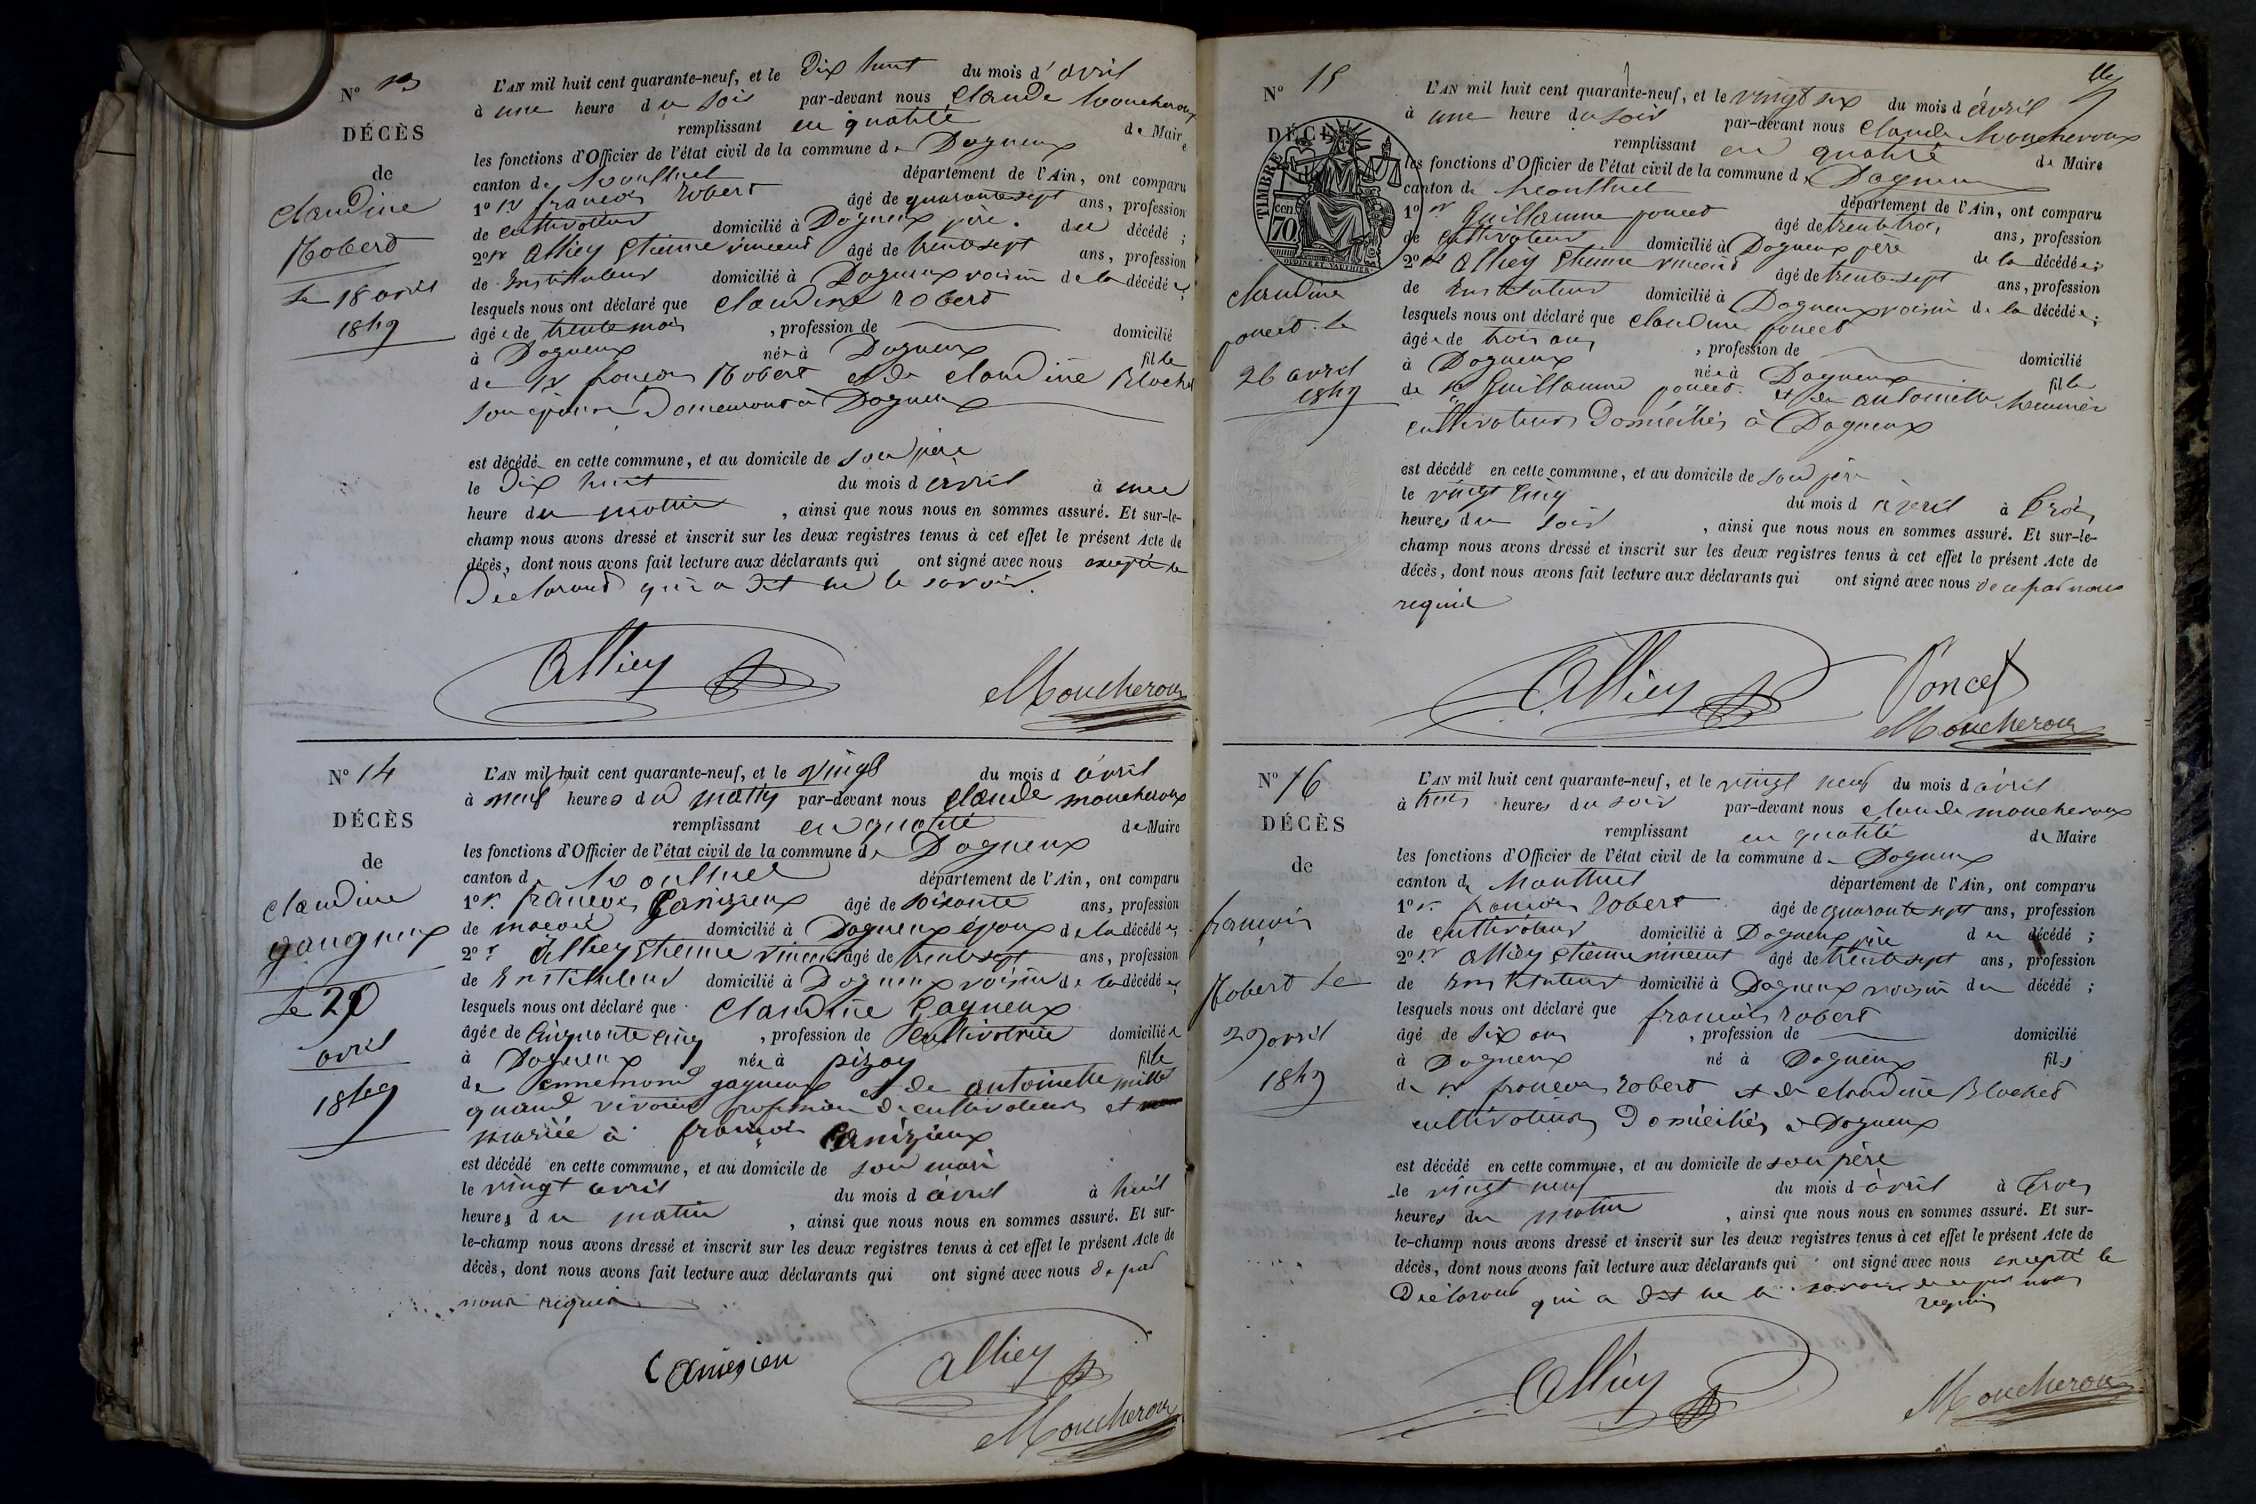 N° 13
DÉCÈS
de
Claudine
Robert
Le 18 avril
1849
L'AN mil huit cent quarante-neuf, et le Dix huit du mois d'avril
à une heure du soir par-devant nous Claude Moucheroux
remplissant en qualité de Maire
les fonctions d'Officier de l'état civil de la commune de Dagneux
canton de Montluel département de l'Ain, ont comparu
1° Sr françois Robert âgé de quarante sept ans, profession
de cultivateur domicilié à Dagneux père du décédé ;
2° Sr Alliey Etienne vincent âgé de trente sept ans, profession
de Instituteur domicilié à Dagneux voisin de la décédée ;
lesquels nous ont déclaré que Claudine robert
âgée de trente mois , profession de domicilié
à Dagneux née à Dagneux fille
de Sr françois Robert et de Claudine Blochet
son épouse Demeurant à Dagneux
est décédé en cette commune, et au domicile de son père
le Dix huit du mois d avril à une
heure du matin , ainsi que nous nous en sommes assuré. Et sur-le-
champ nous avons dressé et inscrit sur les deux registres tenus à cet effet le présent Acte de
décès, dont nous avons fait lecture aux déclarants qui ont signé avec nous excepté le
Déclarant qui a dit ne le savoir.
Alliey
Moucheroux
N° 14
DÉCÈS
de
Claudine
gaugneux
Le 20
avril
1849
L'AN mil huit cent quarante-neuf, et le vingt du mois d avril
à neuf heures du matin par-devant nous Claude moucheroux
remplissant en qualité de Maire
les fonctions d'Officier de l'état civil de la commune de Dagneux
canton de Montluel département de l'Ain, ont comparu
1° Sr françois Canizieux âgé de soixante ans, profession
de macon domicilié à Dagneux époux de la décédée ;
2° Sr Alliey Etienne vincent âgé de trente sept ans, profession
de Instituteur domicilié à Dagneux voisin de la décédée ;
lesquels nous ont déclaré que Claudine Gagneux
âgée de cinquante cinq , profession de Cultivatrice domiciliée
à Dagneux née à pizay fille
de ennemond gagneux et de antoinette millet
quand vivaient profession de cultivateurs et
mariée à françois Canizieux
est décédé en cette commune, et au domicile de son mari
le vingt avril du mois d avril à huit
heures du matin , ainsi que nous nous en sommes assuré. Et sur-
le-champ nous avons dressé et inscrit sur les deux registres tenus à cet effet le présent Acte de
décès, dont nous avons fait lecture aux déclarants qui ont signé avec nous de par
nous requis
Alliey
Moucheroux
N° 15
DÉCÈS
TIMBRE
70
Claudine
poncet. Le
26 avril
1849
L'AN mil huit cent quarante-neuf, et le vingt six du mois d avril
à une heure du soir par-devant nous Claude Moucheroux
remplissant en qualité de Maire
les fonctions d'Officier de l'état civil de la commune d, Dagneux
canton de Montluel département de l'Ain, ont comparu
1° Sr Guillaume poncet âgé de trente trois ans, profession
de cultivateur domicilié à Dagneux père de la décédée ;
2° Sr Alliey Etienne vincent âgé de trente sept ans, profession
de Instituteur domicilié à Dagneux voisin de la décédée ;
lesquels nous ont déclaré que Claudine poncet
âgée de trois ans , profession de domicilié
à Dagneux née à Dagneux fille
de Sr Guillaume poncet. et de antoinette
cultivateurs Domiciliés à Dagneux
est décédé en cette commune, et au domicile de son père
le vingt cinq du mois d avril à trois
heures du soir , ainsi que nous nous en sommes assuré. Et sur-le-
champ nous avons dressé et inscrit sur les deux registres tenus à cet effet le présent Acte de
décès, dont nous avons fait lecture aux déclarants qui ont signé avec nous de ce par nous
requis
Alliey Poncet
Moucheroux
N° 16
DÉCÈS
de
françois
Robert Le
29 avril
1849
L'AN mil huit cent quarante-neuf, et le vingt neuf du mois d avril
à trois heures du soir par-devant nous Claude moucheroux
remplissant en qualité de Maire
les fonctions d'Officier de l'état civil de la commune de Dagneux
canton de Montluel département de l'Ain, ont comparu
1° Sr françois robert âgé de quarante sept ans, profession
de cultivateur domicilié à Dagneux père du décédé ;
2° Sr Alliey Etienne vincent âgé de trente sept ans, profession
de Instituteur domicilié à Dagneux voisin du décédé ;
lesquels nous ont déclaré que françois robert
âgé de six ans , profession de domicilié
à Dagneux né à Dagneux fils
de Sr françois robert et de Claudine Blochet
cultivateurs Domiciliés à Dagneux
est décédé en cette commune, et au domicile de son père
le vingt neuf du mois d avril à trois
heures du matin , ainsi que nous nous en sommes assuré. Et sur-
le-champ nous avons dressé et inscrit sur les deux registres tenus à cet effet le présent Acte de
décès, dont nous avons fait lecture aux déclarants qui ont signé avec nous excepté le
Déclarant qui a dit ne le savoir de ce par nous
requis
Alliey
Moucheroux